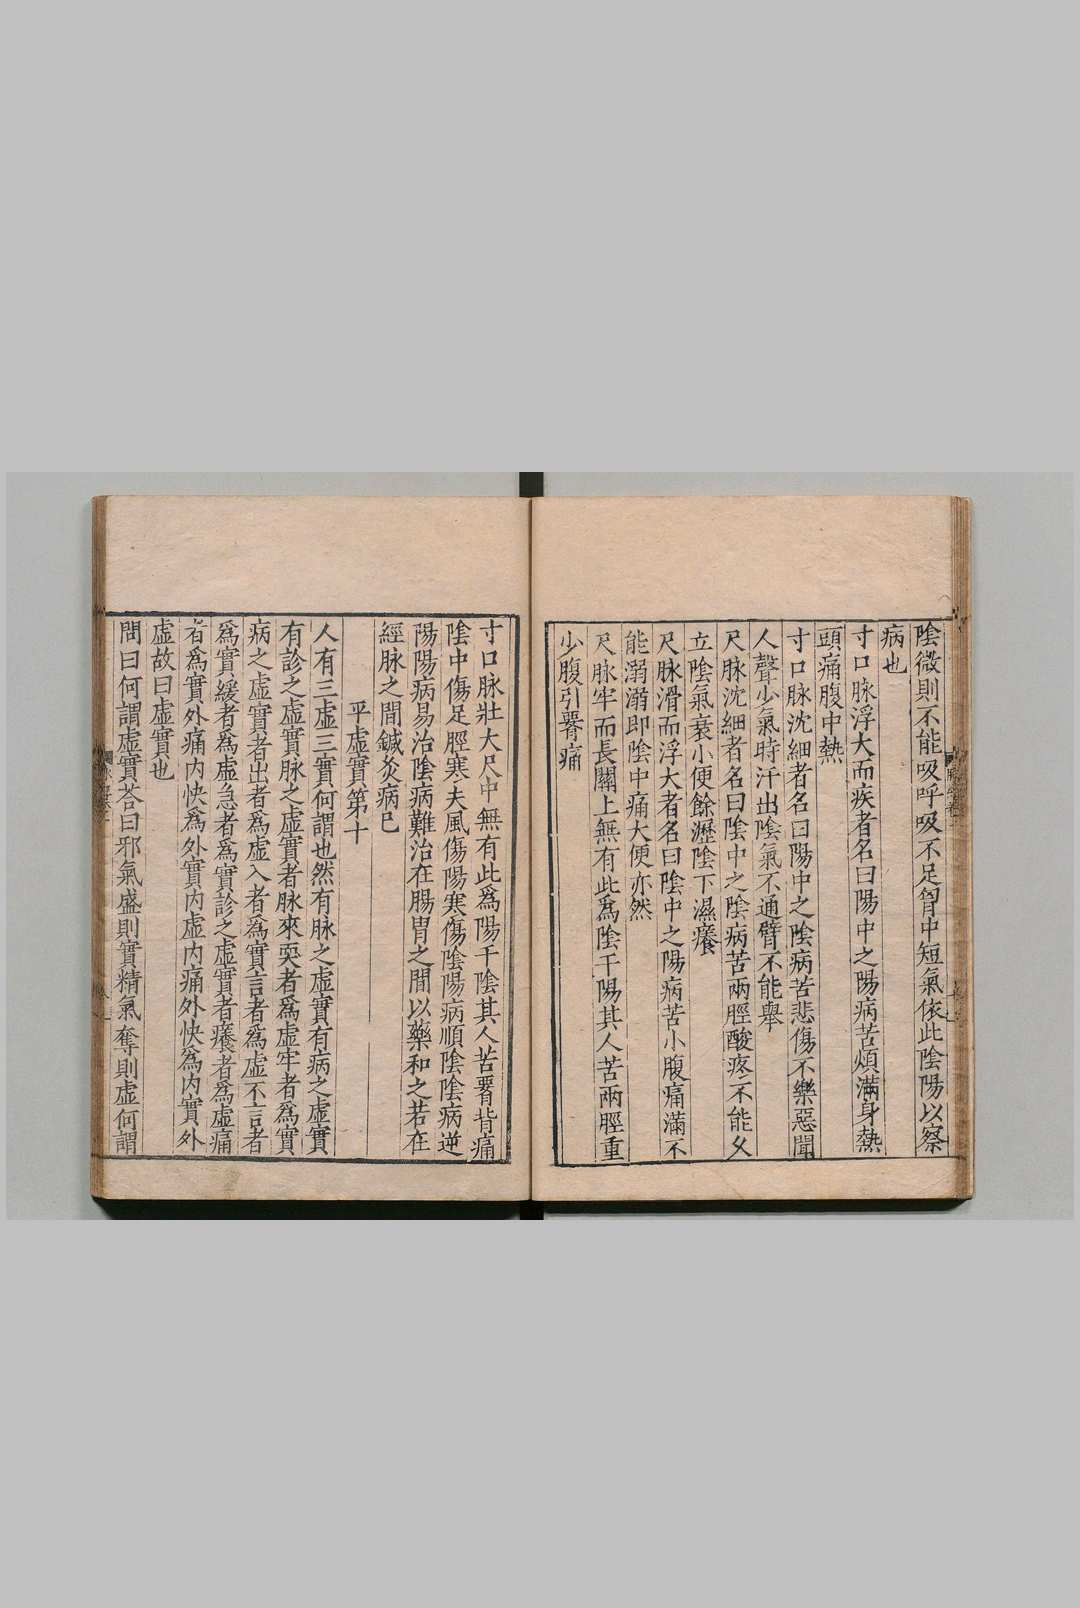 陰微則不能吸呼吸不足胷中短氣依此陰陽以察
病也
寸口脉浮大而疾者名曰陽中之陽病苦煩滿身熱
頭痛腹中熱
寸口脉沈細者名曰陽中之陰病苦悲傷不樂惡聞
人聲少氣時汗出陰氣不通臂不能舉
尺脉沈細者名曰陰中之陰病苦兩脛酸疼不能乆
立陰氣衰小便餘瀝陰下濕癢
尺脉滑而浮大者名曰陰中之陽病苦小腹痛滿不
能溺溺即陰中痛大便亦然
尺脉牢而長關上無有此為陰干陽其人苦兩脛重
少腹引𦝫痛
寸口脉壯大尺中無有此爲陽干陰其人苦𦝫背痛
陰中傷足脛寒夫風傷陽寒傷陰陽病順陰陰病逆
陽陽病易治陰病難治在腸胃之間以藥和之若在
經脉之間鍼灸病已
平虛實第十
人有三虛三實何謂也然有脉之虛實有病之虛實
有診之虛實脉之虛實者脉來耎者爲虛牢者爲實
病之虛實者出者爲虛入者爲實言者爲虛不言者
爲實緩者爲虛急者爲實診之虛實者癢者爲虛痛
者爲實外痛内快爲外實内虛内痛外快爲内實外
虛故曰虛實也
問曰何謂虛實荅曰邪氣盛則實精氣奪則虛何謂